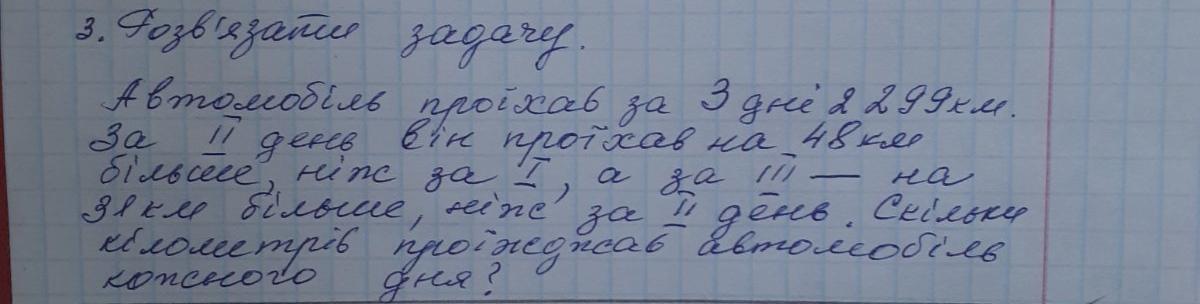 3. Розв'язати задачу.
Автомобіль проїхав за 3 дні 2 299км.
За II день він проїхав на 48км
більше, ніж за I, а за III — на
31км більше, ніж за II день. Скільки
кілометрів проїжджав автомобіль
кожного дня?